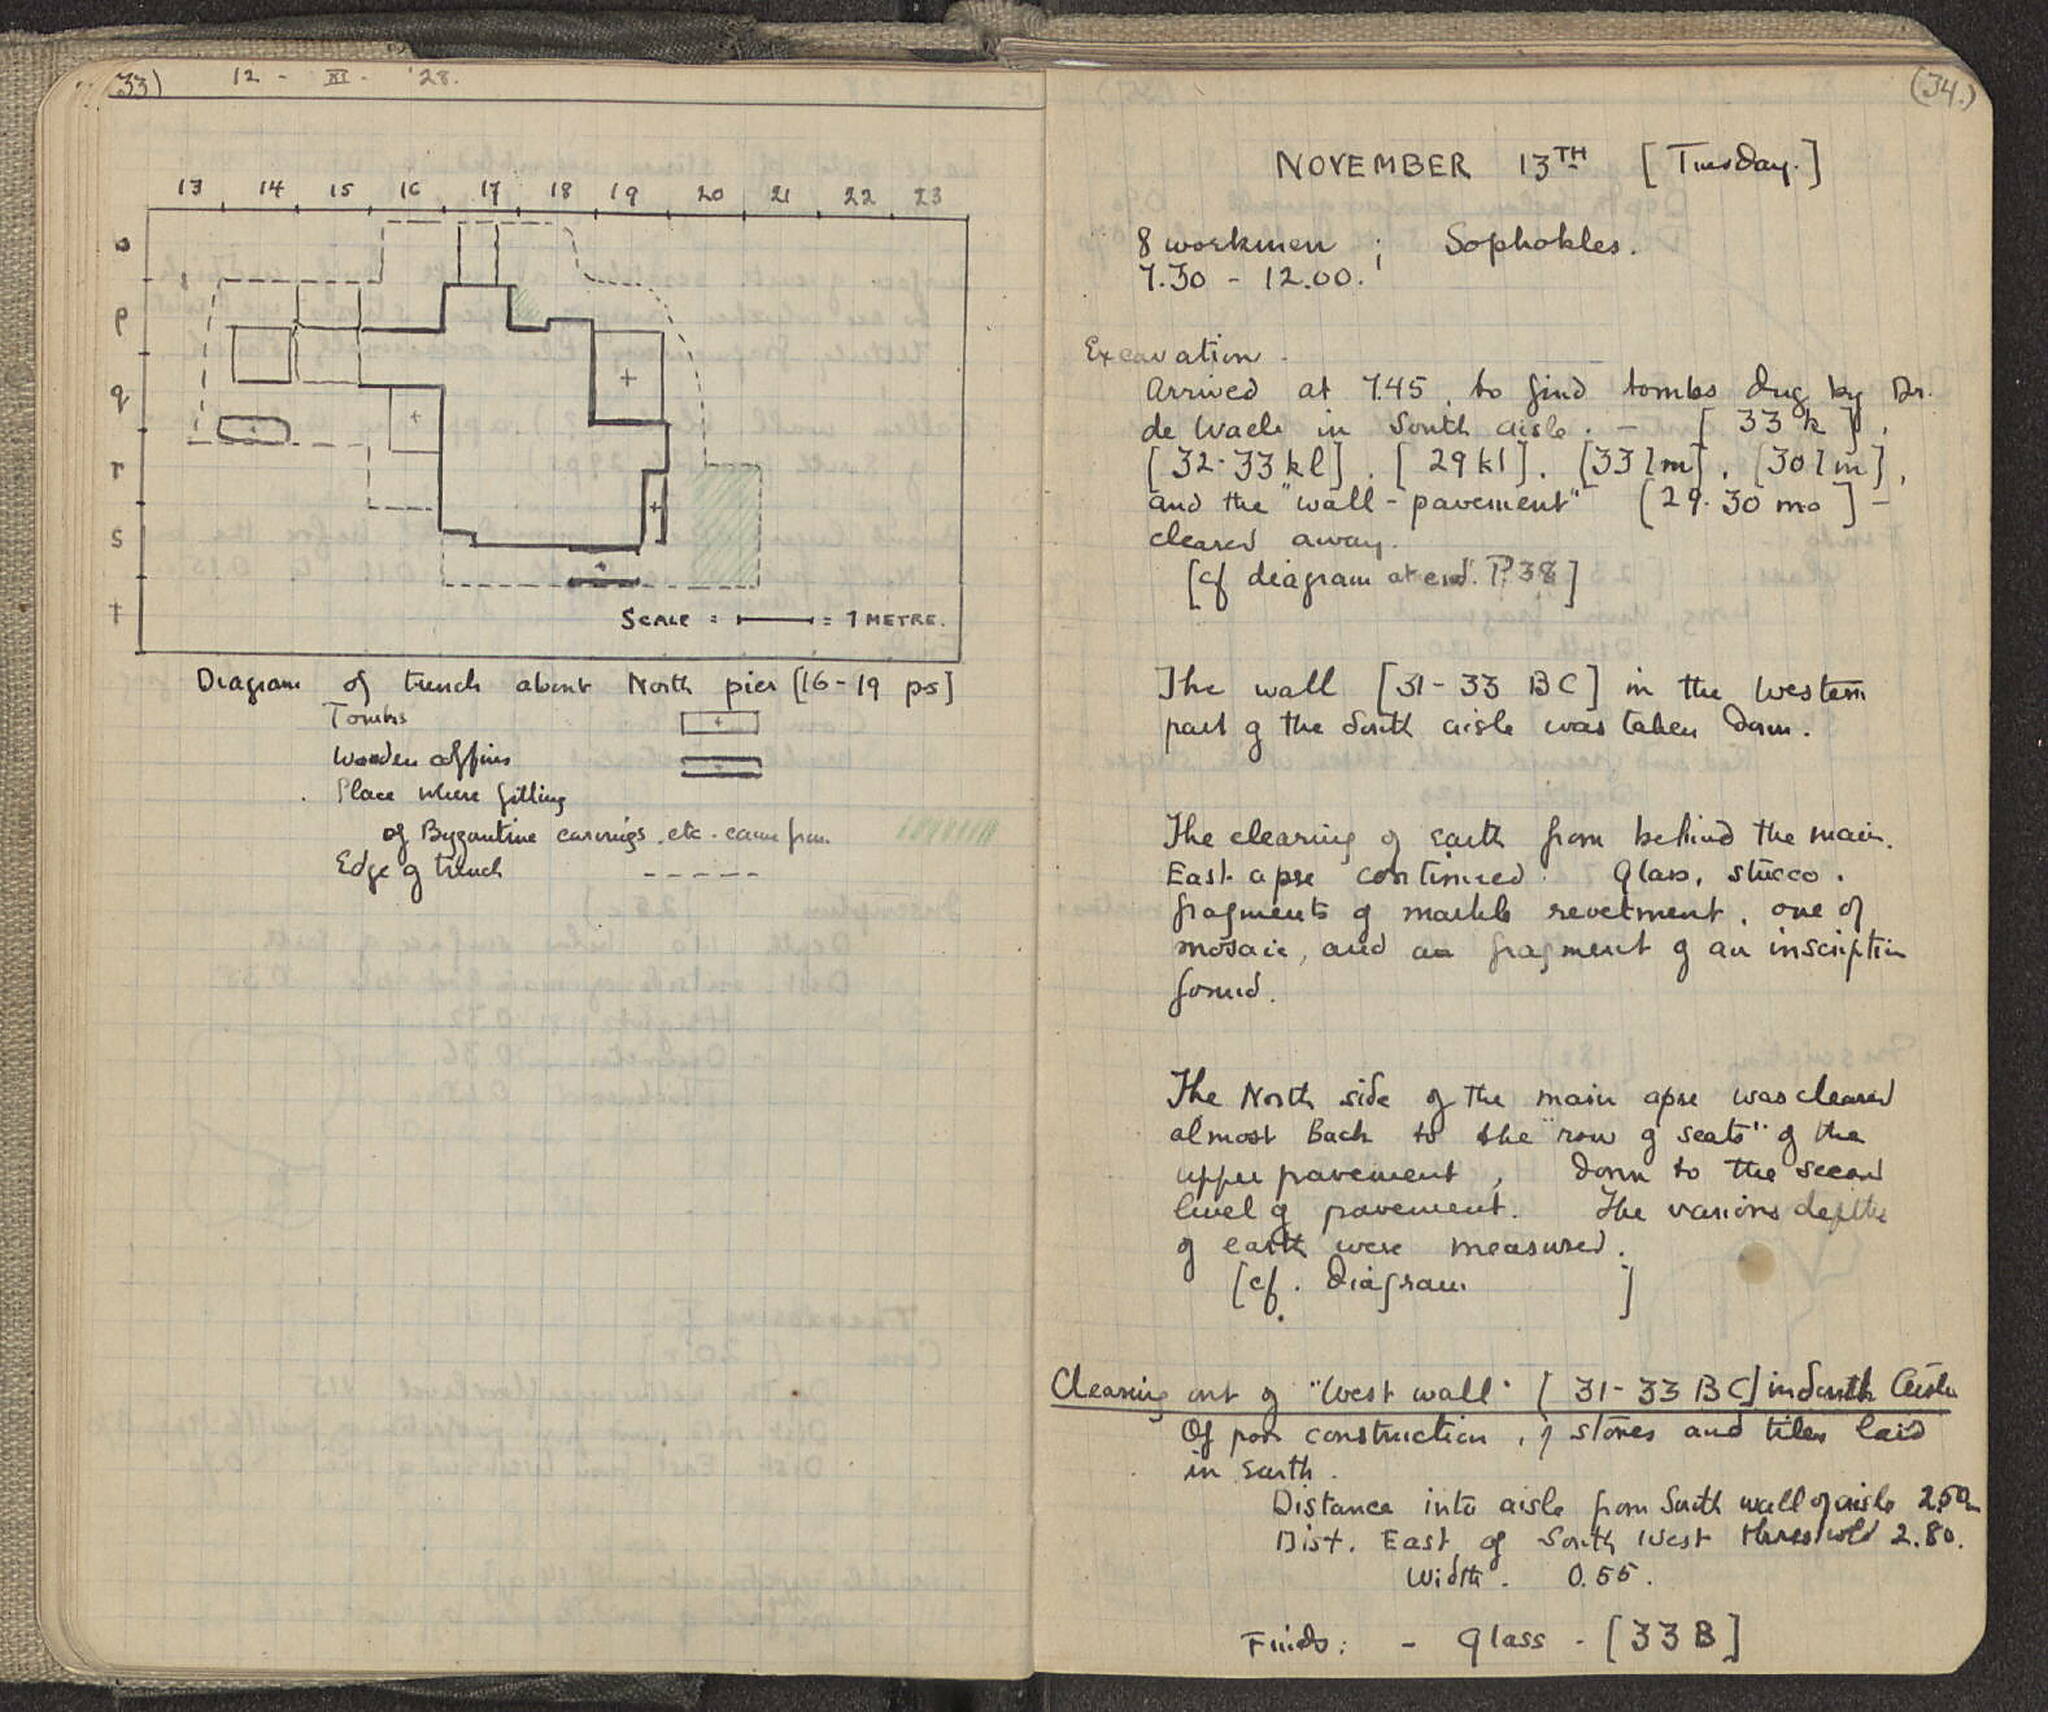 33) 12 - XI - '28.
13 14 15 16 17 18 19 20 21 22 23
o
p
q
r
s
t
SCALE = = 1 METRE.
Diagram of trench about North pier [16-19 ps]
Tombs
Wooden coffins
Place where filling
of Byzantine carvings etc. came from
Edge of trench
(34.)
NOVEMBER 13TH [Tuesday.]
8 workmen ; Sophokles.
7.30 - 12.00.
Excavation.
Arrived at 7.45, to find tombs dug by Dr.
de Waele in South aisle. - [33 k],
[32-33 kl], [29 kl], [33 lm], [30 lm],
and the "wall-pavement" [29-30 mo] -
cleared away.
[cf diagram at end. P. 38]
The wall [31-33 BC] in the Western
part of the South aisle was taken down.
The clearing of earth from behind the main
East apse continued. Glass, stucco,
fragments of marble revetment, one of
mosaic, and a fragment of an inscription
found.
The North side of the main apse was cleared
almost Back to the "row of seats" of the
upper pavement, down to the second
level of pavement. The various depths
of earth were measured.
[cf. Diagram ]
Clearing out of "West wall" [31-33 BC] in South Aisle
Of poor construction, of stones and tiles laid
in earth.
Distance into aisle from South wall of aisle 2.50m
Dist. East of South West threshold 2.80.
Width. 0.55.
Finds: - Glass - [33 B]